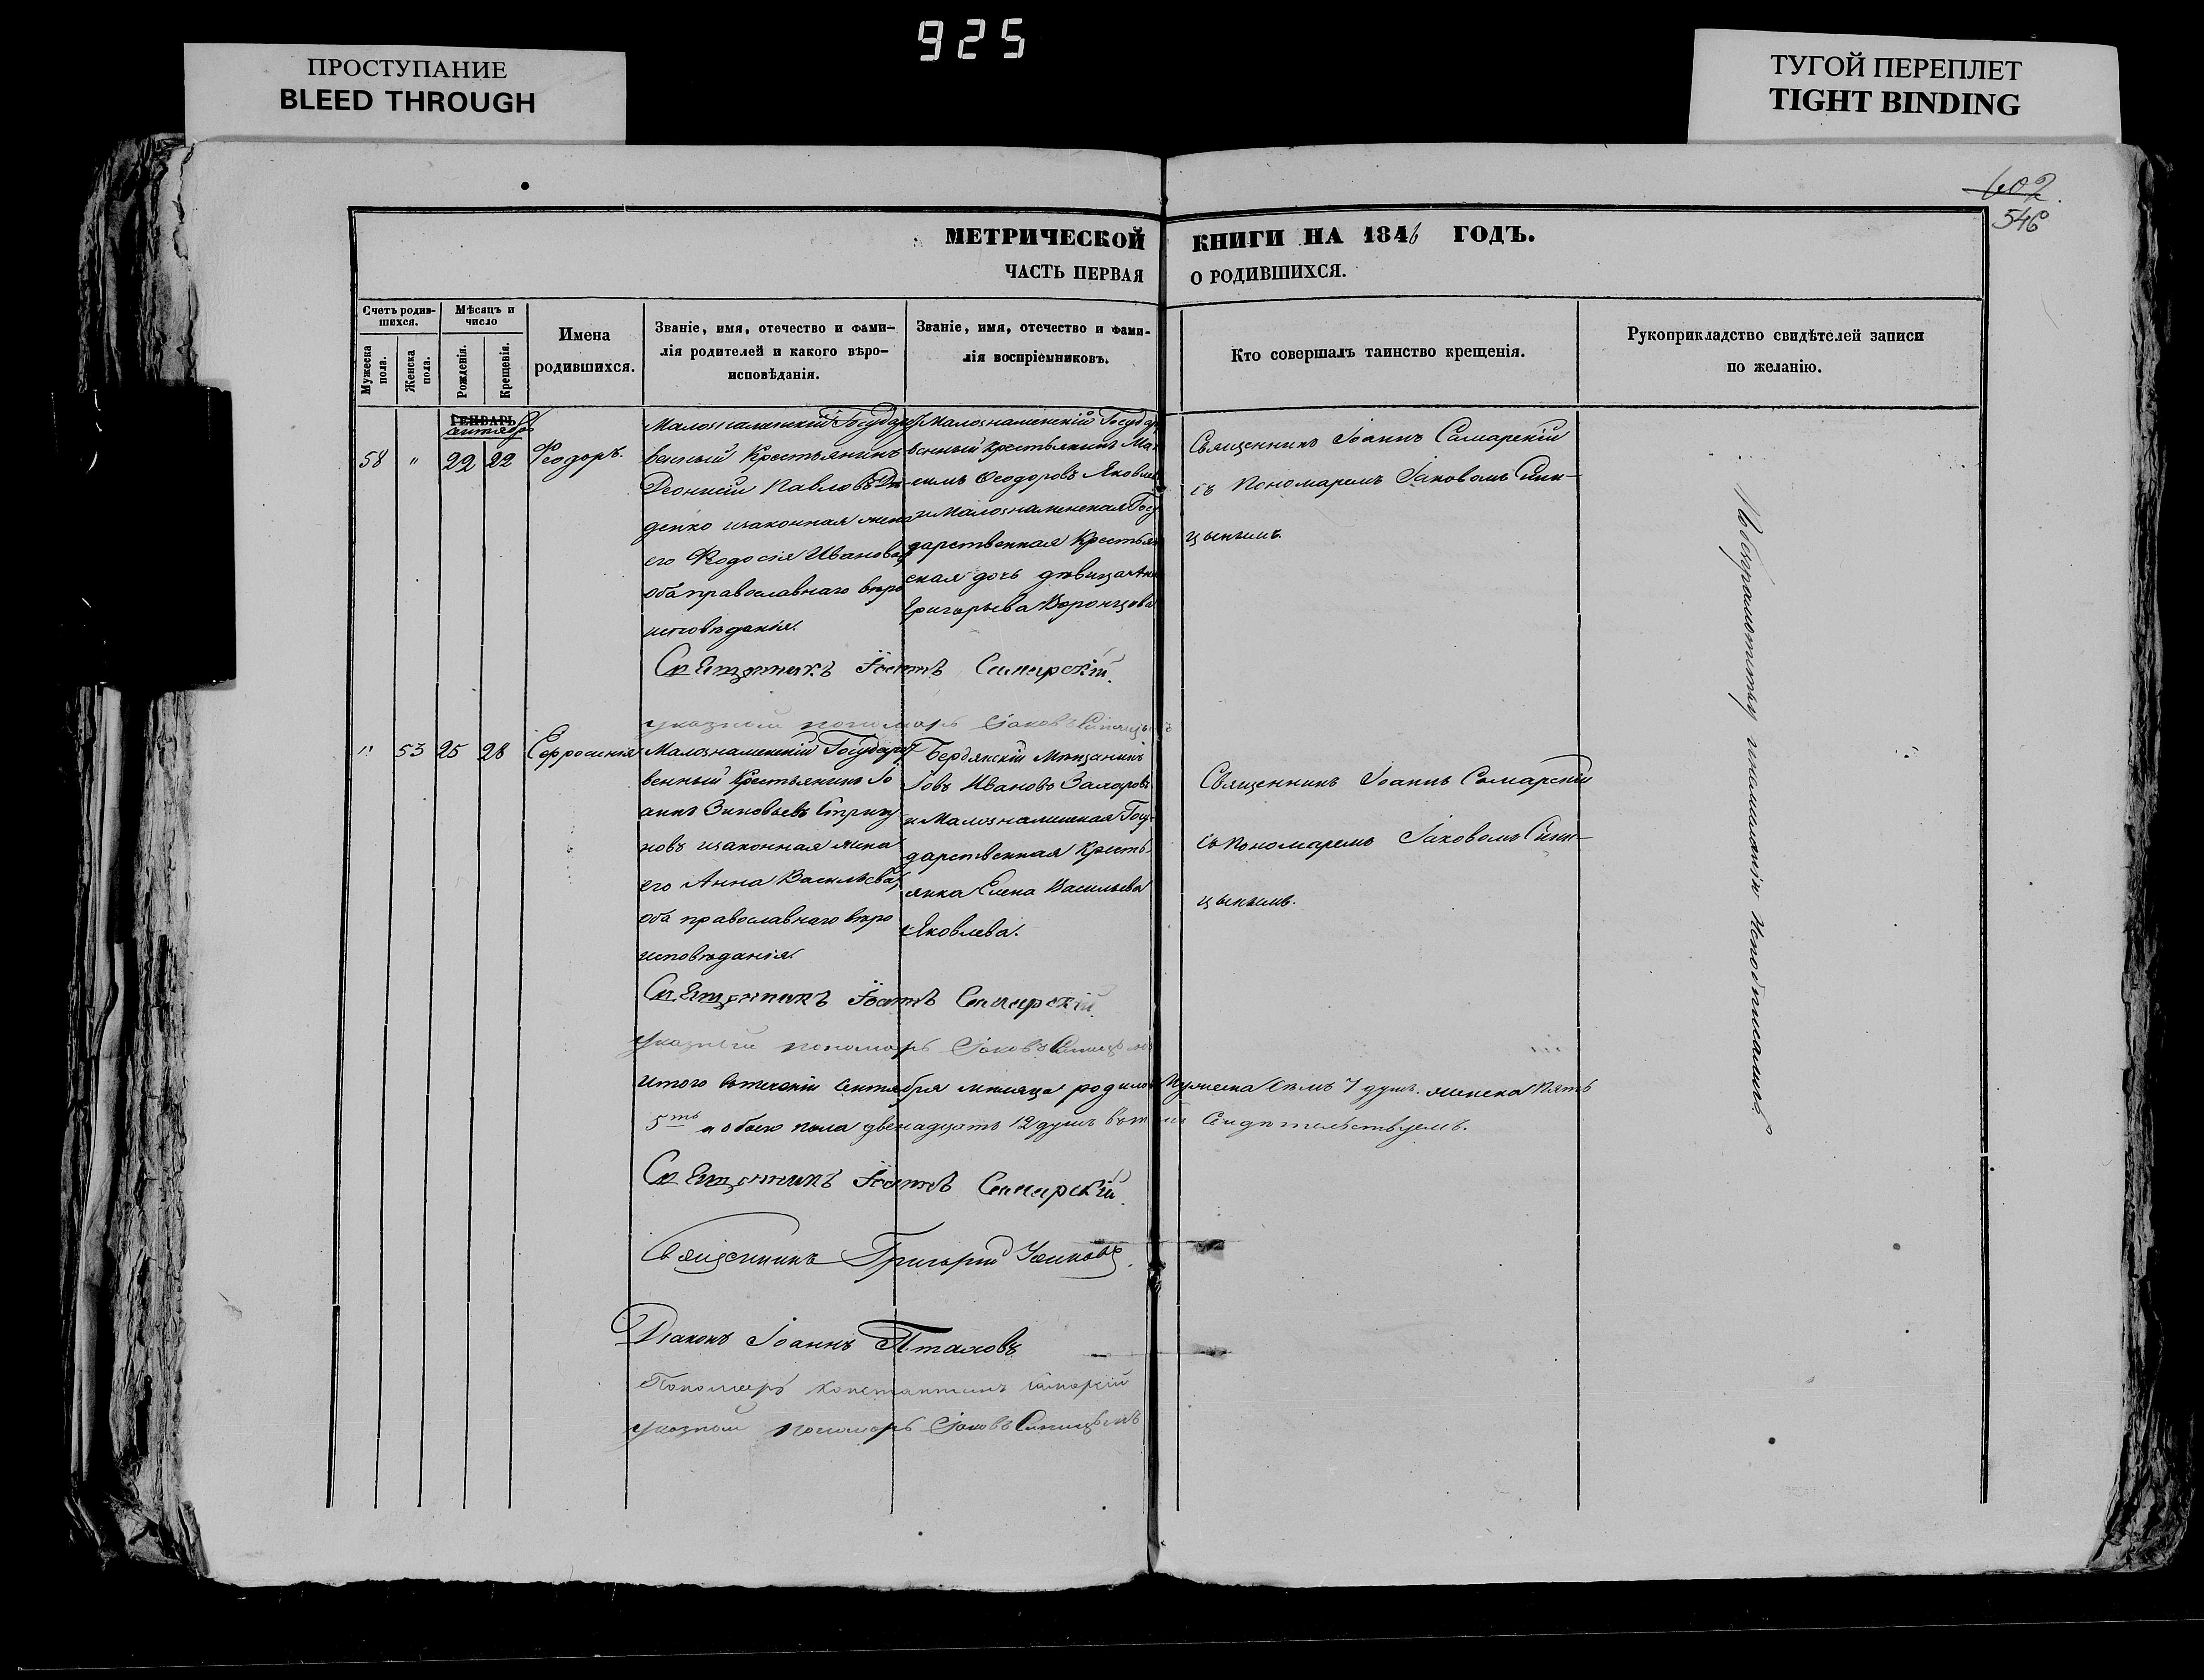 925
ПРОСТУПАНИЕ
BLEED THROUGH
ТУГОЙ ПЕРЕПЛЕТ
TIGHT BINDING
602
546
МЕТРИЧЕСКОЙ КНИГИ НА 1846 ГОДЪ.
ЧАСТЬ ПЕРВАЯ О РОДИВШИХСЯ.
Счетъ родив-
шихся.
Мужеска пола.
Женска пола.
Мѣсяцъ и
число
Рожденія.
Крещенія.
Имена
родившихся.
Званіе, имя, отечество и фами-
лія родителей и какого вѣро-
исповѣданія.
Званіе, имя, отечество и фами-
лія воспріемниковъ.
Кто совершалъ таинство крещенія.
Рукоприкладство свидѣтелей записи
по желанію.
ГЕНВАРЬ
Сентябрь
58 " 22 22 Феодоръ.
Малознаменскій Государст
венный Крестьянинъ
Деонисій Павловъ
денко изаконная жена
его Феодосія Иванова,
оба православнаго вѣро
исповѣданія.
Малознаменскій Государ
венный крестьянинъ
Феодоровъ Яковлев
и Малознаменская Госу
дарственная Крестьян
ская дочь дѣвица
Григорьева Воронцова
Священникъ Іоаннъ Самарскій
съ Пономаремъ Іаковомъ Сини-
цынымъ.
Священникъ Іоаннъ Самарскій.
указный пономарь Іаковъ Синицынъ
" 53 25 28 Ефросинія
Малознаменскій Государст
венный Крестьянинъ Іо
аннъ Зиновьевъ Стригу
новъ изаконная жена
его Анна Васильева,
оба православнаго вѣро
исповѣданія.
Бердянскій Мѣщанинъ
Іовъ Ивановъ Захаровъ
и Малознаменская Госу-
дарственная Кресть-
янка Елена Васильева
Яковлева.
Священникъ Іоаннъ Самарскій
съ пономаремъ Іаковомъ Сини-
цынымъ.
Священникъ Іоаннъ Самарскій.
указный пономарь Іаковъ Синицынъ
Итого втеченіи Сентября мѣсяца родилось Мужеска семъ 7 душъ. женска Пять
5ть а обоего пола двенадцать 12 душъ въ томъ Свидѣтельствуемъ.
Священникъ Іоаннъ Самарскій.
Священникъ Григорій
Діаконъ Іоаннъ
Пономарь Константинъ
указный пономарь Іаковъ Синицынъ